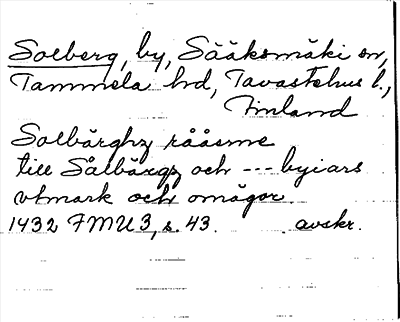 Solberg, by, Sääksmäki sn,
Tammela hd, Tavastehus l.,
Finland
Solbärghz rååsme
till Sålbärgz och --- byiars
vtmark och omägor.
1432 FMU 3, s. 43. avskr.